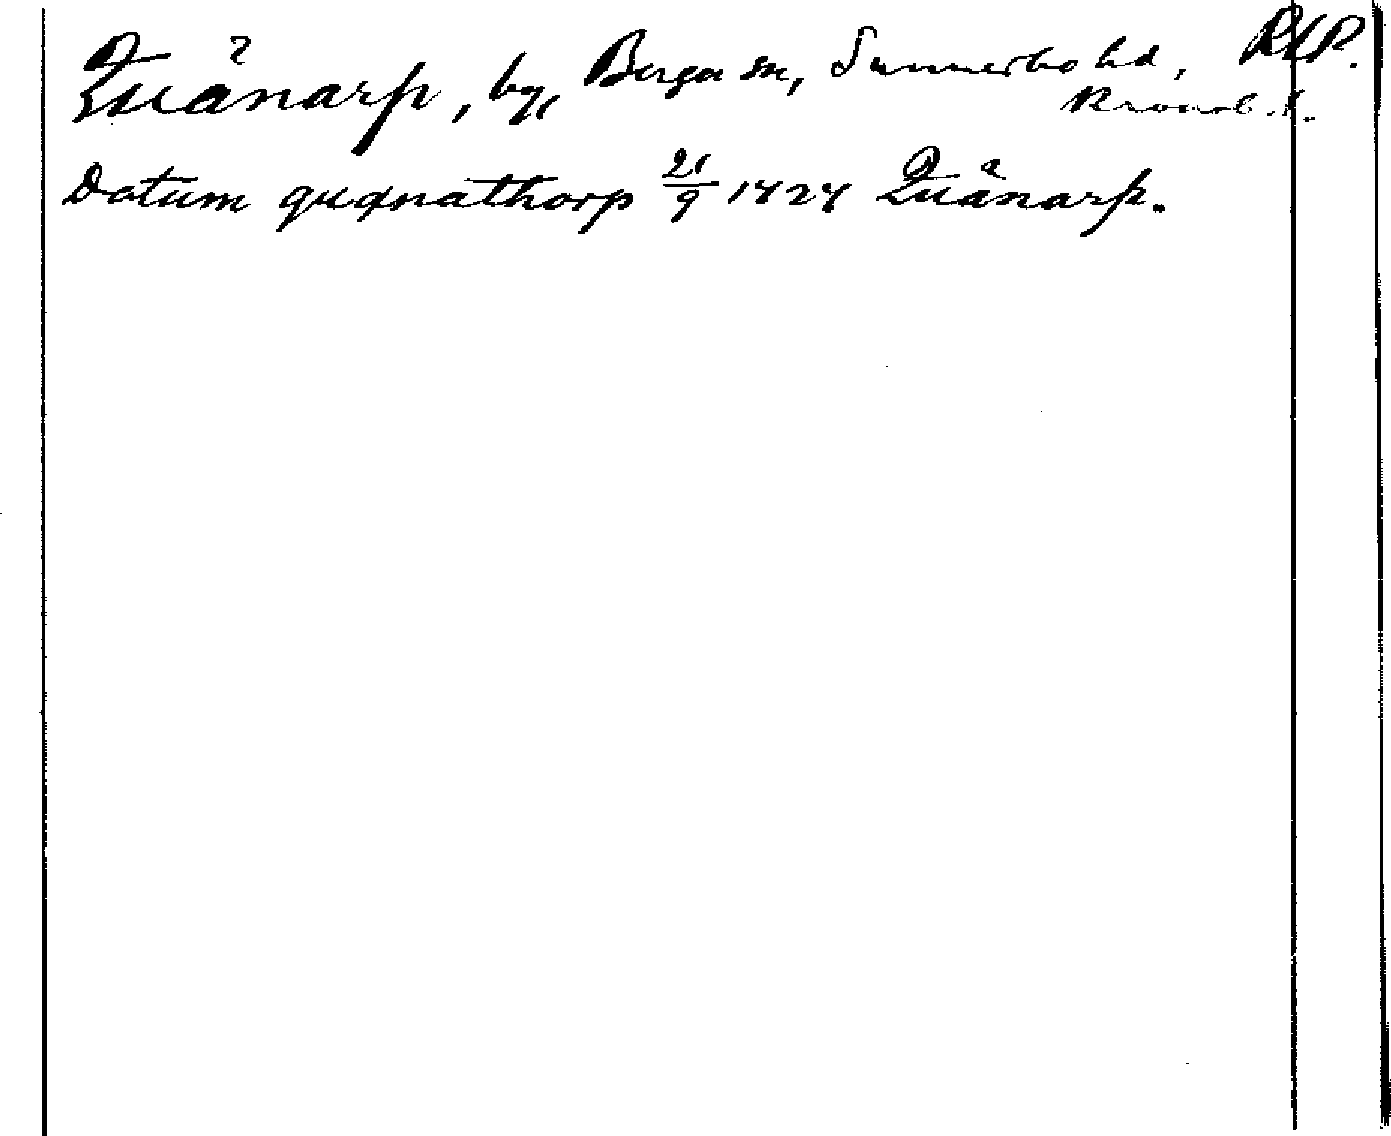 Quänarp, by, Berga sn, Sunnerbo hd, RAP.
Kronob. l.
Datum quænathorp 21/9 1424 Quänarp.